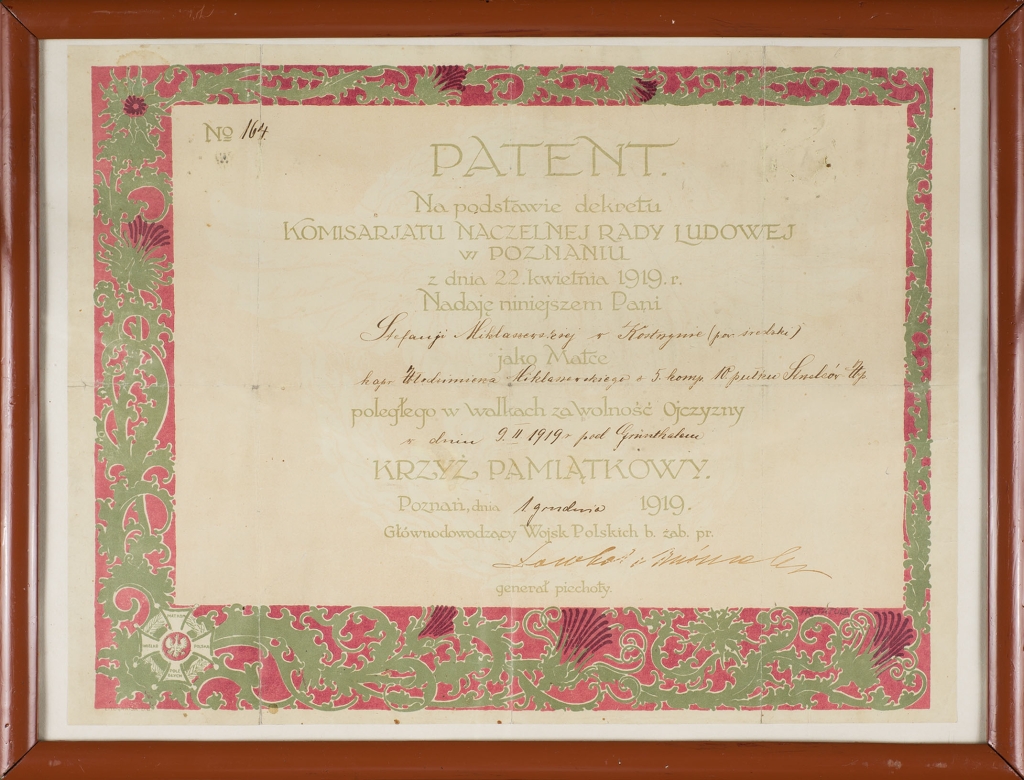 No 164
PATENT.
Na podstawie dekretu
KOMISARJATU NACZELNEJ RADY LUDOWEJ
w POZNANIU
z dnia 22. kwietnia 1919. r.
Nadaję niniejszem Pani
Stefanji Miklaszewskiej w Kostrzynie (pow. średzki)
jako Matce
kapr. Włodzimierza Miklaszewskiego z 5. komp. 10 pułku Strzelców Wlp.
poległego w walkach za wolność Ojczyzny
w dniu 9. II 1919 r. pod Grünthalem
KRZYŻ PAMIĄTKOWY.
Poznań, dnia 1 grudnia 1919.
Głównodowodzący Wojsk Polskich b. zab. pr.
generał piechoty.